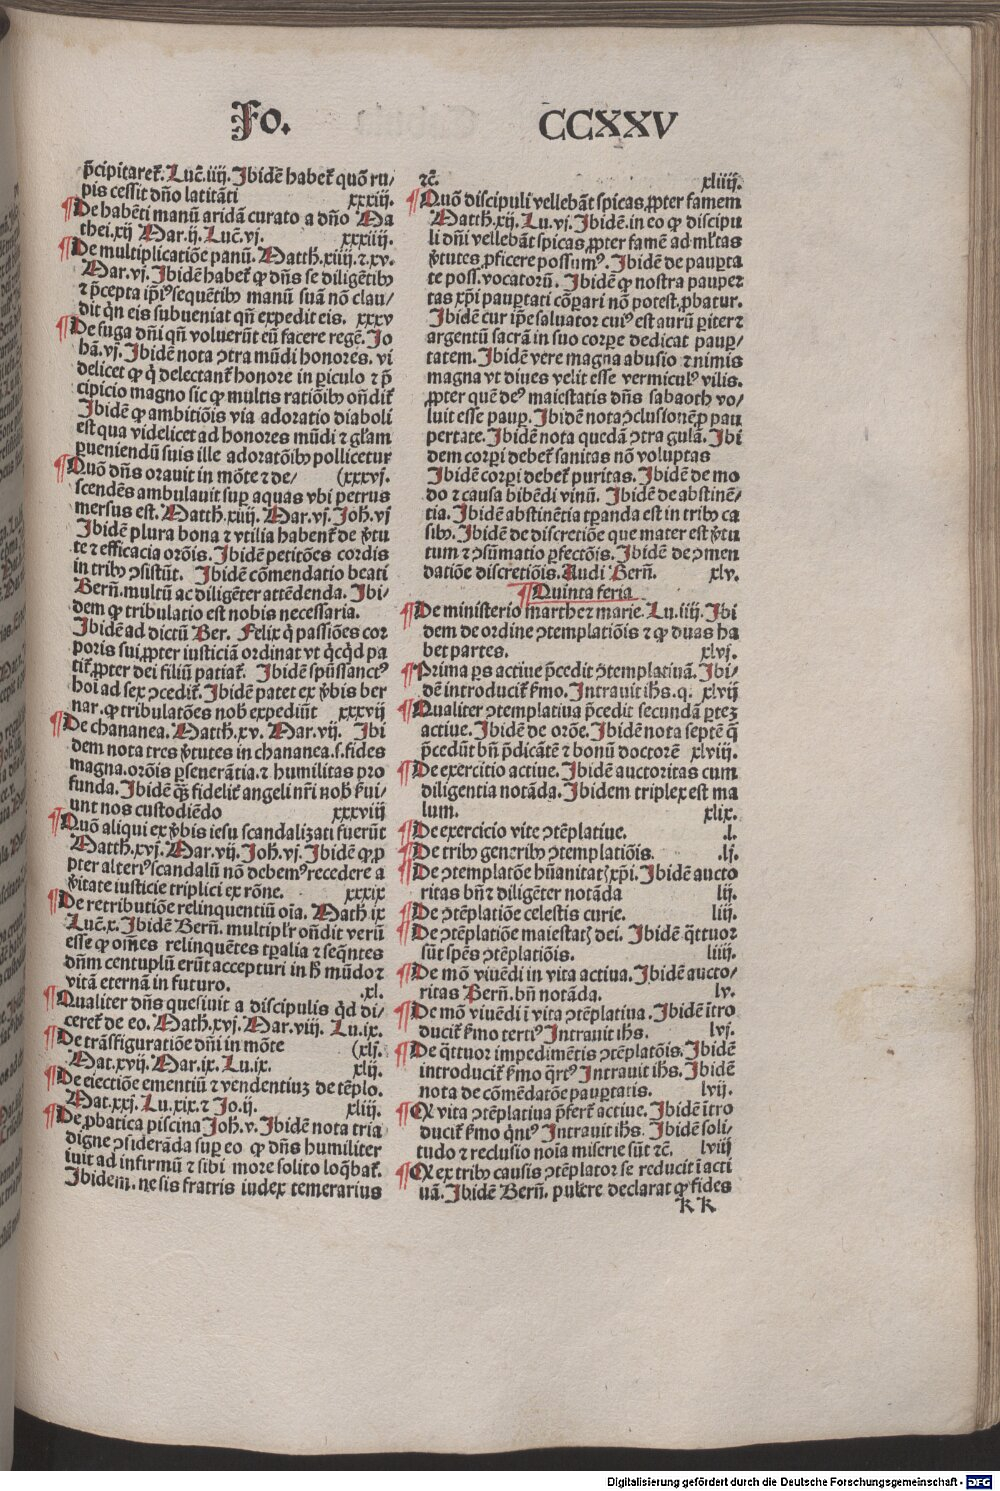 Fo. CCXXV
p̄cipitaret᷑. Luc̄. iiij. Ibidē habet᷑ quō ru/
pis cessit dño latitāti xxxiij.
¶De habēti manū aridā curato a dño Ma
thei. xij Mar. ij. Luc̄. vj. xxxiiij.
¶De multiplicatiōe panū. Matth̄. xiiij. ⁊. xv.
Mar. vj. Ibidē habet᷑ ꝙ dñs se diligētibꝰ
⁊ p̄cepta ip̄iꝰ sequētibꝰ manū suā nō clau/
dit qͥn eis subueniat qñ expedit eis. xxxv
¶De fuga dñi qñ voluerūt eū facere regē. Jo
hā. vj. Ibidē nota ꝯtra mūdi honores. vi
delicet ꝙ qͥ delectant᷑ honore in ꝑiculo ⁊ p̄
cipicio magno sic ꝙ multis ratiōibꝰ oñdit᷑
Ibidē ꝙ ambitiōis via adoratio diaboli
est qua videlicet ad honores mūdi ⁊ gl̄am
ꝑueniendū suis ille adoratōibꝰ pollicetur
¶Quō dñs orauit in mōte ⁊ de/ (xxxvj.
scendēs ambulauit suꝑ aquas vbi petrus
mersus est. Matth̄. xiiij. Mar. vj. Joh̄. vj
Ibidē plura bona ⁊ vtilia habent᷑ de v̄tu
te ⁊ efficacia orōis. Ibidē petitōes cordis
in tribꝰ ꝯsistūt. Ibidē cōmendatio beati
Bern̄. multū ac diligēter attēdenda. Ibi/
dem ꝙ tribulatio est nobis necessaria.
Ibidē ad dictū Ber. Felix qͥ passiōes cor
poris sui ꝓpter iusticiā ordinat vt qͥcqͥd pa
tit᷑ ꝓpter dei filiū patiat᷑. Ibidē spūssanctꝰ
hoī ad sex ꝯcedit᷑. Ibidē patet ex v̄bis ber
nar. ꝙ tribulatōes nob̄ expediūt xxxvij
¶De chananea. Matth̄. xv. Mar. vij. Ibi
dem nota tres v̄tutes in chananea. s. fides
magna. orōis ꝑseuerātia. ⁊ humilitas pro
funda. Ibidē qꝫ fidelit᷑ angeli nr̄i nob̄ s̄ui/
unt nos custodiēdo xxxviij
¶Quō aliqui ex v̄bis iesu scandalizati fuerūt
Matth̄. xvj. Mar. vij. Joh̄. vj. Ibidē ꝙ ꝓ
pter alteriꝰ scandalū nō debemꝰ recedere a
v̄itate iusticie triplici ex rōne. xxxix
¶De retributiōe relinquentiū oīa. Math̄ ix
Luc̄. x. Ibidē Bern̄. multipl'r oñdit verū
esse ꝙ oīnes relinquētes tꝑalia ⁊ seqn̄tes
dn̄m centuplū erūt accepturi in h̄ mūdo ⁊
vitā eternā in futuro. .xl.
¶Qualiter dñs quesiuit a discipulis qͥd di/
ceret᷑ de eo. Math̄. xvj. Mar. viij. Lu. ix.
¶De trāsfiguratiōe dñi in mōte (xlj.
Mat. xvij. Mar. ix. Lu. ix. xlij.
¶De eiectiōe ementiū ⁊ vendentiuꝫ de tēplo.
Mat. xxj. Lu. xix. ⁊ Jo. ij. xliij.
¶De ꝓbatica piscina Joh̄. v. Ibidē nota tria
digne ꝯsiderāda suꝑ eo ꝙ dñs humiliter
iuit ad infirmū ⁊ sibi more solito loqͣbat᷑.
Ibidem. ne sis fratris iudex temerarius
⁊c̄. xliiij.
¶Quō discipuli vellebāt spicas ꝓpter famem
Matth̄. xij. Lu. vj. Ibidē. in eo ꝙ discipu
li dñi vellebāt spicas ꝓpter famē ad ml̄tas
v̄tutes ꝓficere possumꝰ. Ibidē de pauꝑta
te poss. vocatorū. Ibidē ꝙ nostra pauper
tas xp̄i pauꝑtati cōꝑari nō potest ꝓbatur.
Ibidē cur ip̄e saluator cuiꝰ est aurū ꝑiter ⁊
argentū sacrā in suo corꝑe dedicat pauꝑ/
tatem. Ibidē vere magna abusio ⁊ nimis
magna vt diues velit esse vermiculꝰ vilis.
ꝓpter quē deꝰ maiestatis dñs sabaoth vo/
luit esse pauꝑ. Ibidē nota ꝯclusionē ꝓ pau
pertate. Ibidē nota quedā ꝯtra gulā. Ibi
dem corꝑi debet᷑ sanitas nō voluptas
Ibidē corꝑi debet᷑ puritas. Ibidē de mo
do ⁊ causa bibēdi vinū. Ibidē de abstinē/
tia. Ibidē abstinētia tꝑanda est in tribꝰ ca
sibꝰ. Ibidē de discretiōe que mater est v̄tu
tum ⁊ ꝯsūmatio ꝑfectōis. Ibidē de ꝯmen
datiōe discretiōis. Audi Bern̄. xlv.
¶Quinta feria
¶De ministerio marthe ⁊ marie. Lu. iiij. Ibi
dem de ordine ꝯtemplatiōis ⁊ ꝙ duas ha
bet partes. xlvj.
¶Prima ꝑs actiue p̄cedit ꝯtemplatiuā. Ibi/
dē introducit᷑ s̄mo. Intrauit ih̄s. q. xlvij
¶Qualiter ꝯtemplatiua p̄cedit secundā ꝑteꝫ
actiue. Ibidē de orōe. Ibidē nota septē q̄
p̄cedūt bn̄ p̄dicātē ⁊ bonū doctorē xlviij.
¶De exercitio actiue. Ibidē auctoritas cum
diligentia notāda. Ibidem triplex est ma
lum. xlix.
¶De exercicio vite ꝯtēplatiue. .l.
¶De tribꝰ generibꝰ ꝯtemplatiōis. .lj.
¶De ꝯtemplatōe hūanitatꝭ xp̄i. Ibidē aucto
ritas bn̄ ⁊ diligēter notāda lij.
¶De ꝯtēplatiōe celestis curie. liij.
¶De ꝯtēplatiōe maiestatꝭ dei. Ibidē qͣttuor
sūt spēs ꝯtēplatiōis. liiij.
¶De mō viuēdi in vita actiua. Ibidē aucto/
ritas Bern̄. bn̄ notāda. lv.
¶De mō viuēdi ī vita ꝯtēplatiua. Ibidē ītro
ducit᷑ s̄mo tertiꝰ Intrauit ih̄s. lvj.
¶De qͣttuor impedimētis ꝯtēplatōis. Ibidē
introducit᷑ s̄mo qͣrtꝰ Intrauit ih̄s. Ibidē
nota de cōmēdatōe pauꝑtatis. lvij.
¶Qꝫ vita ꝯtēplatiua p̄fert᷑ actiue. Ibidē ītro
ducit᷑ s̄mo qͥntꝰ Intrauit ih̄s. Ibidē soli/
tudo ⁊ reclusio noīa miserie sūt ⁊c̄. lviij
¶Qꝫ ex tribꝰ causis ꝯtēplator se reducit ī acti
uā. Ibidē Bern̄. pulcre declarat ꝙ fides
k k
Digitalisierung gefördert durch die Deutsche Forschungsgemeinschaft - DFG